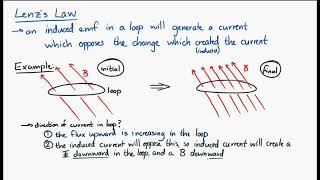 Lenz's Law
→ an induced emf in a loop will generate a current
which opposes the change which created the current
(induced)
Example:
B
initial
loop
⇒
B
final
→ direction of current in loop?
① the flux upward is increasing in the loop
② the induced current will oppose this, so induced current will create a
Φ downward in the loop, and a B downward